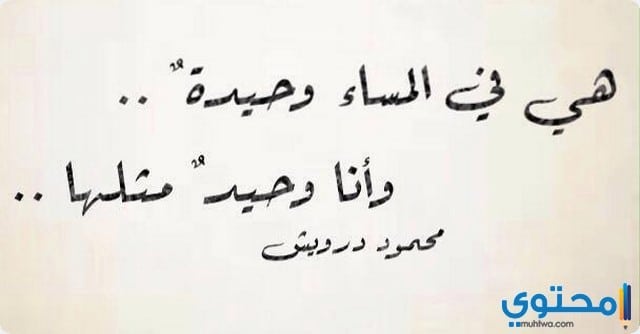 هي في المساء وحيدةٌ ..
وأنا وحيدٌ مثلها ..
محمود درويش
محتوي
muhtwa.com